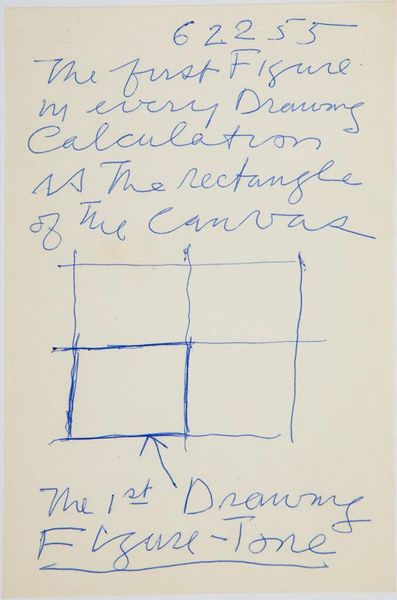 62255
The first Figure
in every Drawing
Calculation
is The rectangle
of The Canvas
The 1st Drawing
Figure-Tone